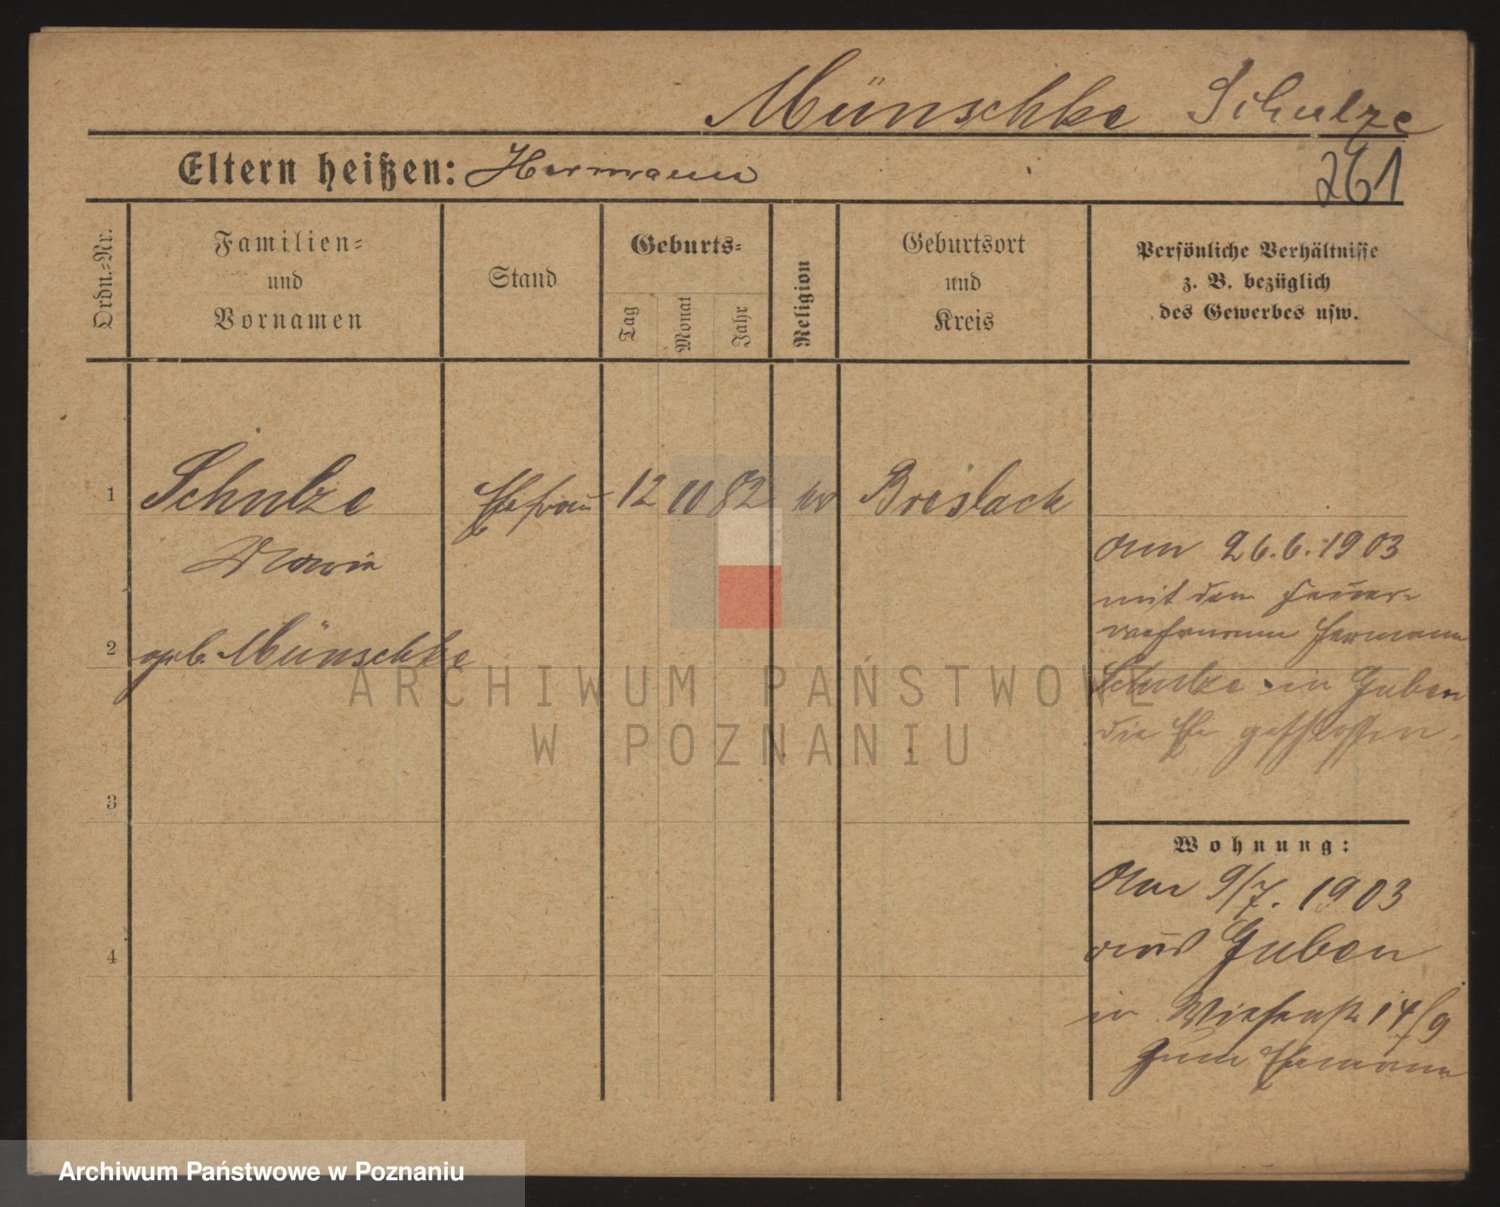 Münschke Schulze
Eltern heißen: Hermann
261
Ordn.-Nr.
Familien-
und
Vornamen
Stand
Geburts-
Tag
Monat
Jahr
Religion
Geburtsort
und
Kreis
Persönliche Verhältnisse
z. B. bezüglich
des Gewerbes usw.
1 Schulze Ehefrau 12 10 82 ev Breslack
Marie
2 geb. Münschke
3
4
Am 26.6.1903
mit dem Feuer-
wehrmann Hermann
Schulze in Guben
die Ehe geschlossen.
Wohnung:
Am 9/7. 1903
aus Guben
in 14/9
zum Ehemann
ARCHIWUM PAŃSTWOWE
W POZNANIU
Archiwum Państwowe w Poznaniu